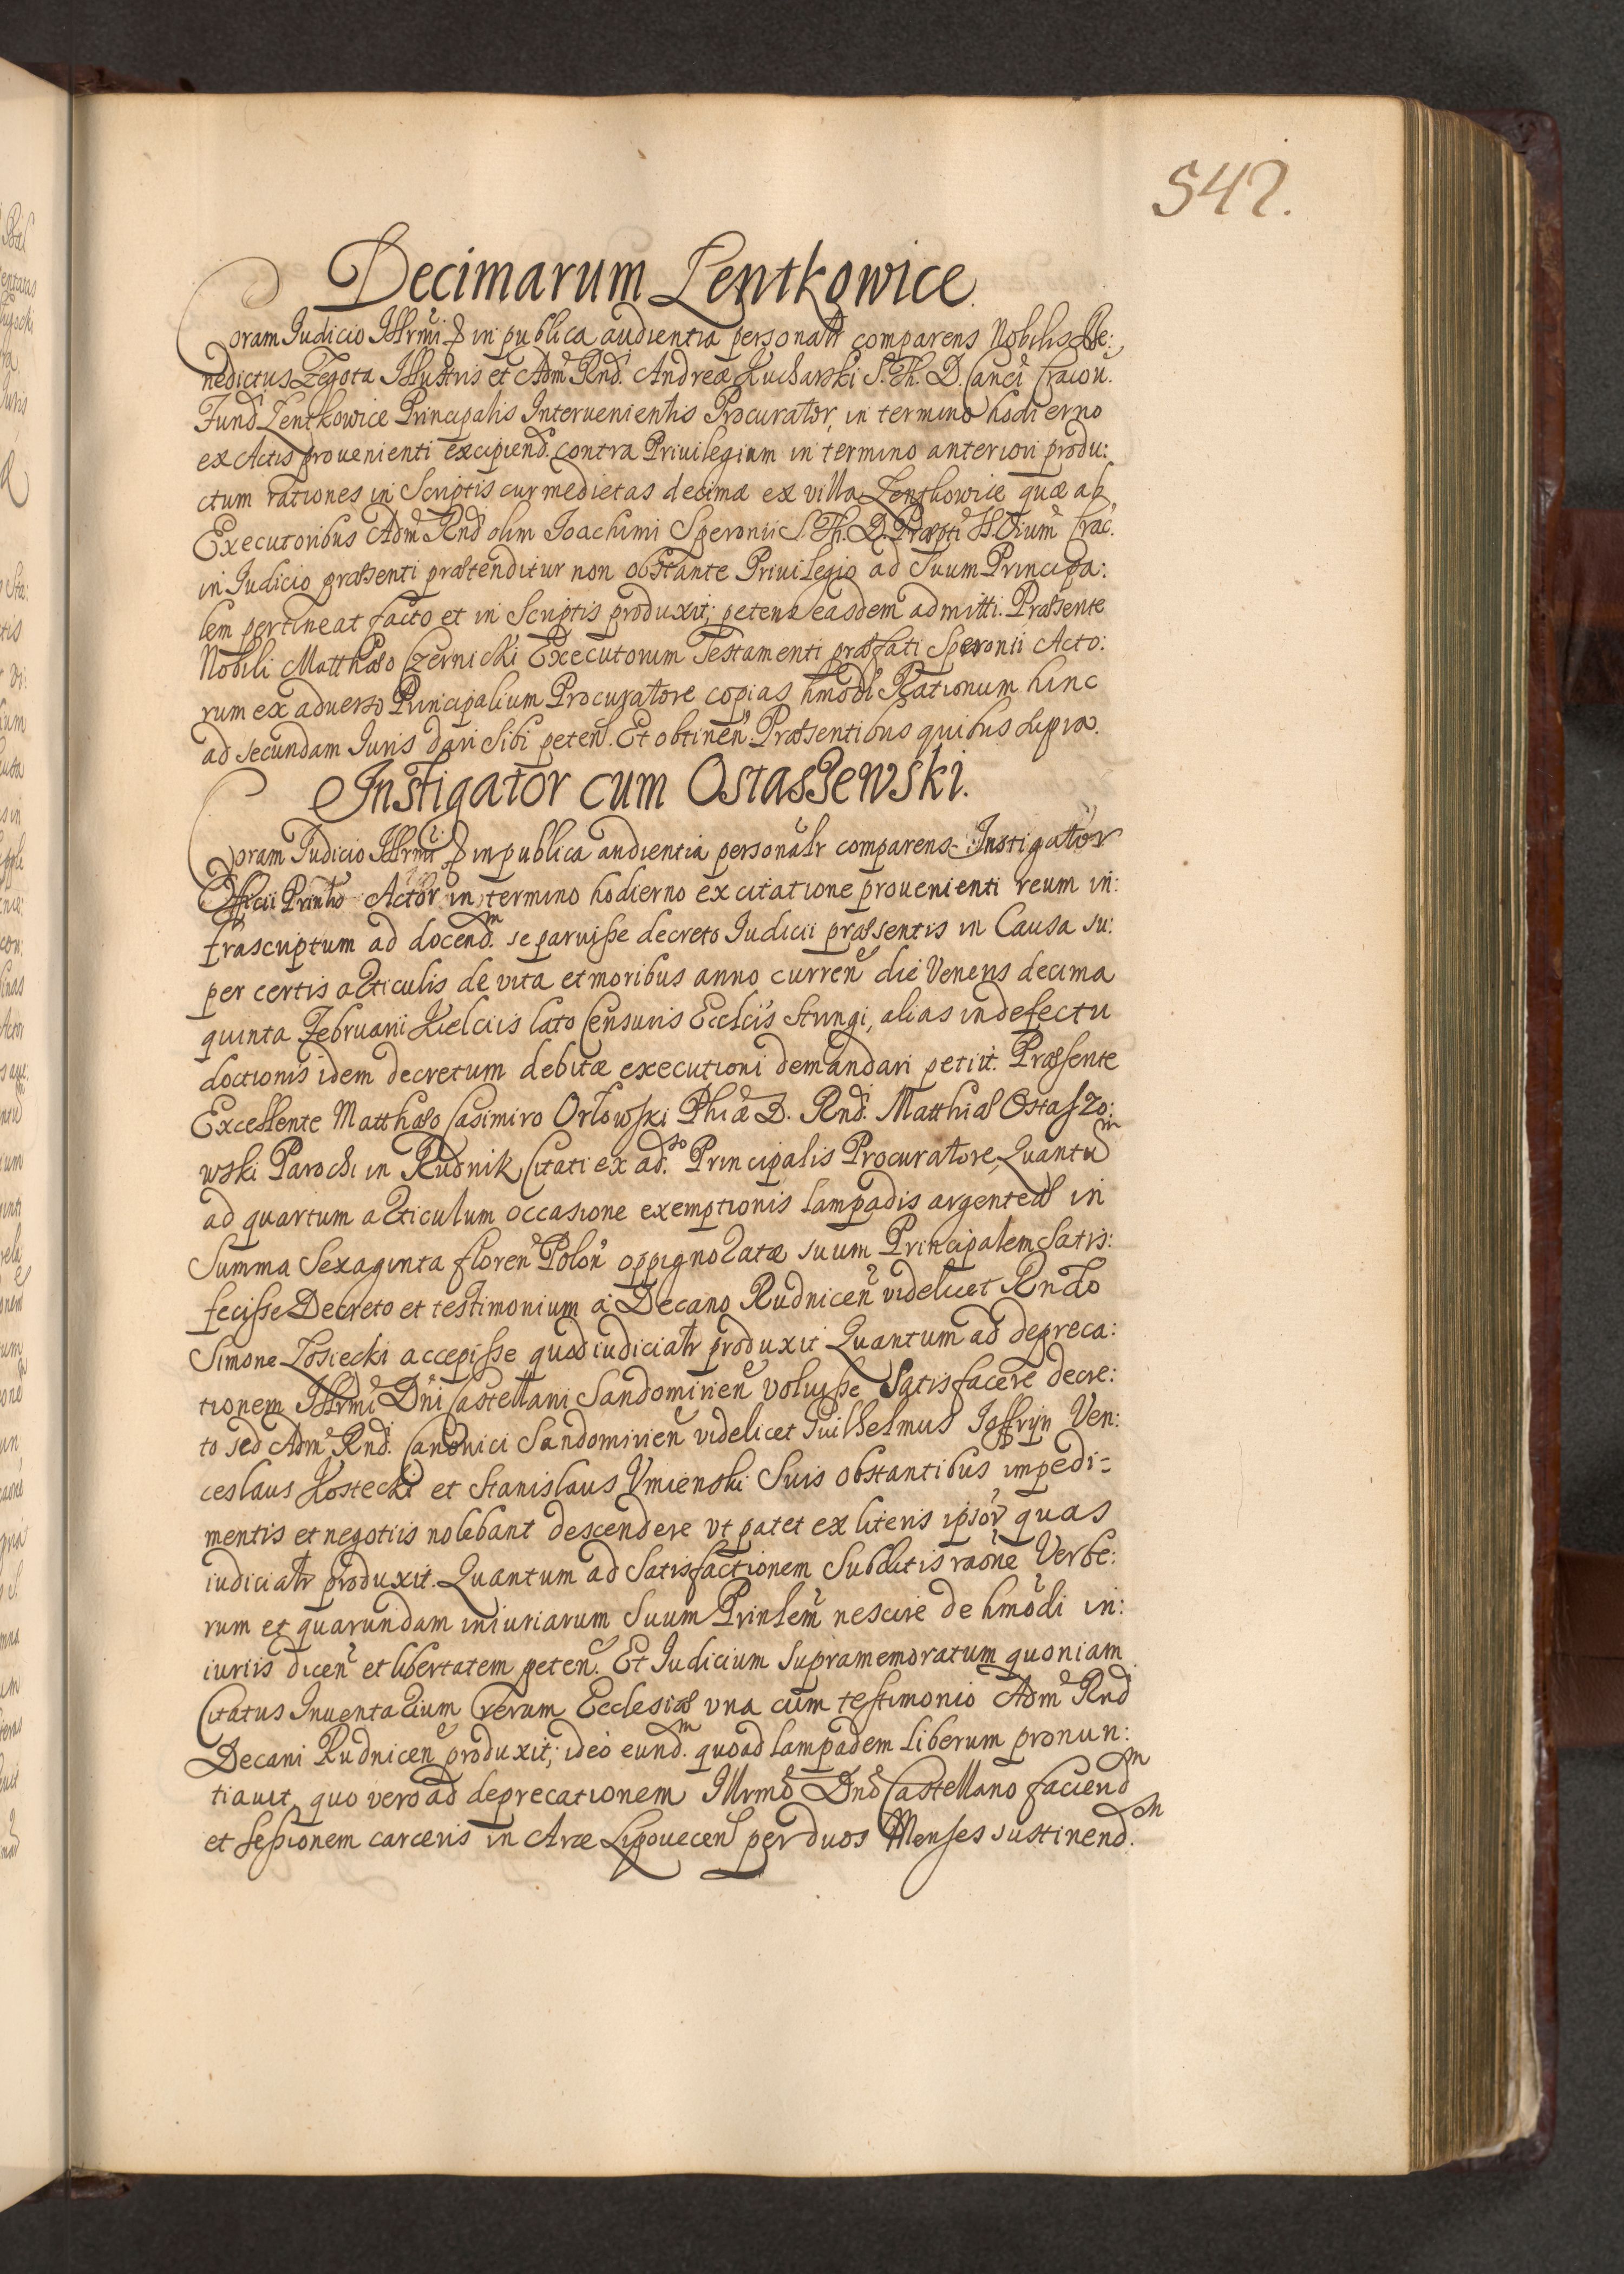 547.
Decimarum Lentkowice.
Coram Judicio Illrmi & in publica audientia personalr comparens Nobilis Be:
nedictus Zegota Illustris et Adm Rnd. Andreæ Kucharski S. Th. D. Canci Cracou.
Fund Lentkowice Principalis Interuenientis Procurator, in termino hodierno
ex Actis prouenienti excipiend. contra Priuilegium in termino anteriori produ:
ctum rationes in Scriptis cur medietas decimæ ex villa Lentkowice quæ ab
Executoribus Adm Rnd olim Joachimi Speronii S. Th. D. Præpti Crac.
in Judicio præsenti prætenditur non obstante Priuilegio ad Suum Principa:
lem pertineat facto et in Scriptis produxit; petens easdem admitti. Præsente
Nobili Matthæo Czernicki Executorum Testamenti præfati Speronii Acto:
rum ex aduerso Principalium Procuratore copias hmodi Rationum hinc
ad secundam Juris dari Sibi peten. Et obtinen. Præsentibus quibus supra.
Instigator cum Ostaszewski.
Coram Judicio Illrmi & in publica audientia personalr comparens Instigator
Officii Actor in termino hodierno ex citatione prouenienti reum in:
frascriptum ad docend.m se paruisse decreto Judicii præsentis in Causa su:
per certis articulis de vita et moribus anno curren die Veneris decima
quinta Februarii Kielciis lato Censuris Ecclcis Stringi, alias in defectu
doctionis idem decretum debitæ executioni demandari petiit. Præsente
Excellente Matthæo Casimiro Orłowski Phiæ D. Rnd. Matthiæ Ostaszo:
wski Parochi in Rudnik Citati ex ad.so Principalis Procuratore, Quantu
ad quartum articulum occasione exemptionis lampadis argenteæ in
Summa Sexaginta floren Polon oppignoratæ suum Principalem Satis:
fecisse Decreto et testimonium à Decano Rudnicen videlicet Rndo
Simone Łosiecki accepisse quod iudicialr produxit Quantum ad depreca:
tionem Illrmi Dni Castellani Sandomirien voluisse Satisfacere decre:
to sed Adm Rnd. Canonici Sandomirien videlicet Guilhelmus Joffryn Ven:
ceslaus Kostecki et Stanislaus Vmienski Suis obstantibus impedi=
mentis et negotiis nolebant descendere vt patet ex literis ipsor quas
iudicialr produxit. Quantum ad Satisfactionem Subditis raone Verbe:
rum et quarundam iniuriarum Suum Prinlem nescire de hmodi in:
iuriis dicen et libertatem peten. Et Judicium supramemoratum quoniam
Citatus Inuentarium rerum Ecclesiæ vna cum testimonio Adm Rnd
Decani Rudnicen produxit; ideò eund.m quoad lampadem liberum pronun:
tiauit, quo vero ad deprecationem Illrmo Dno Castellano faciend
et sessionem carceris in Arce Lipouecen per duos Menses sustinend.m